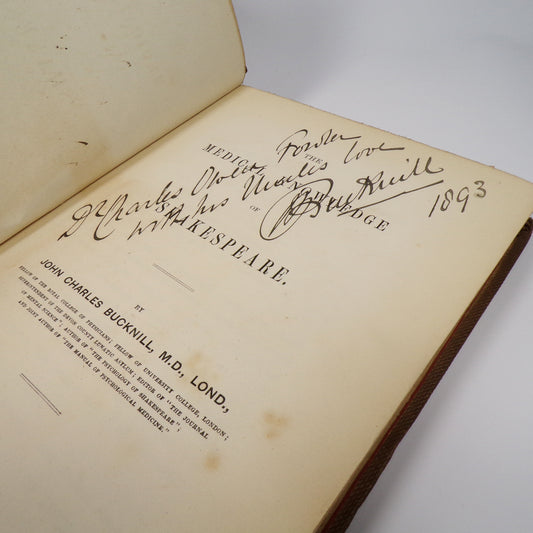 THE
MEDICAL KNOWLEDGE
OF
SHAKESPEARE.
Dr Charles Fowler
with his Uncles love
JCBucknill
1893
BY
JOHN CHARLES BUCKNILL, M.D., LOND.,
FELLOW OF THE ROYAL COLLEGE OF PHYSICIANS; FELLOW OF UNIVERSITY COLLEGE, LONDON;
SUPERINTENDENT OF THE DEVON COUNTY LUNATIC ASYLUM; EDITOR OF "THE JOURNAL
OF MENTAL SCIENCE"; AUTHOR OF "THE PSYCHOLOGY OF SHAKESPEARE";
AND JOINT AUTHOR OF "THE MANUAL OF
PSYCHOLOGICAL MEDICINE."